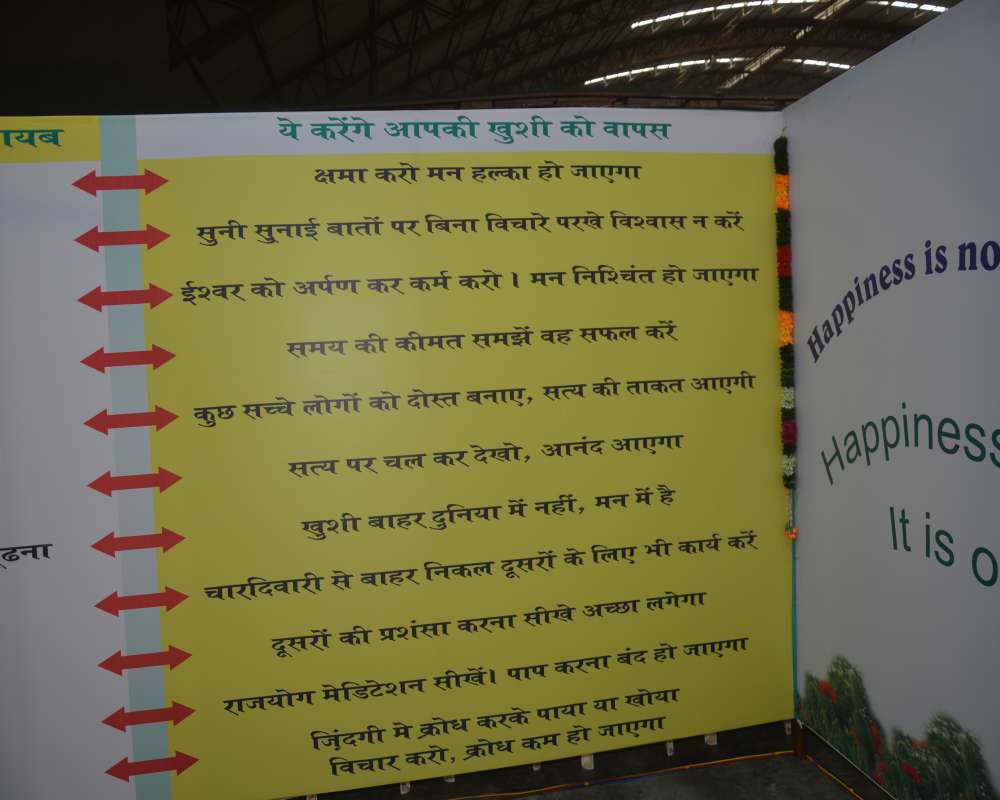 ये करेंगे आपकी खुशी को वापस
क्षमा करो मन हल्का हो जाएगा
सुनी सुनाई बातों पर बिना विचारे परखे विश्वास न करें
ईश्वर को अर्पण कर कर्म करो । मन निश्चिंत हो जाएगा
समय की कीमत समझें वह सफल करें
कुछ सच्चे लोगों को दोस्त बनाए, सत्य की ताकत आएगी
सत्य पर चल कर देखो, आनंद आएगा
खुशी बाहर दुनिया में नहीं, मन में है
चारदिवारी से बाहर निकल दूसरों के लिए भी कार्य करें
दूसरों की प्रशंसा करना सीखे अच्छा लगेगा
राजयोग मेडिटेशन सीखें। पाप करना बंद हो जाएगा
ज़िंदगी मे क्रोध करके पाया या खोया
विचार करो, क्रोध कम हो जाएगा
Happiness is no
Happiness
It is o